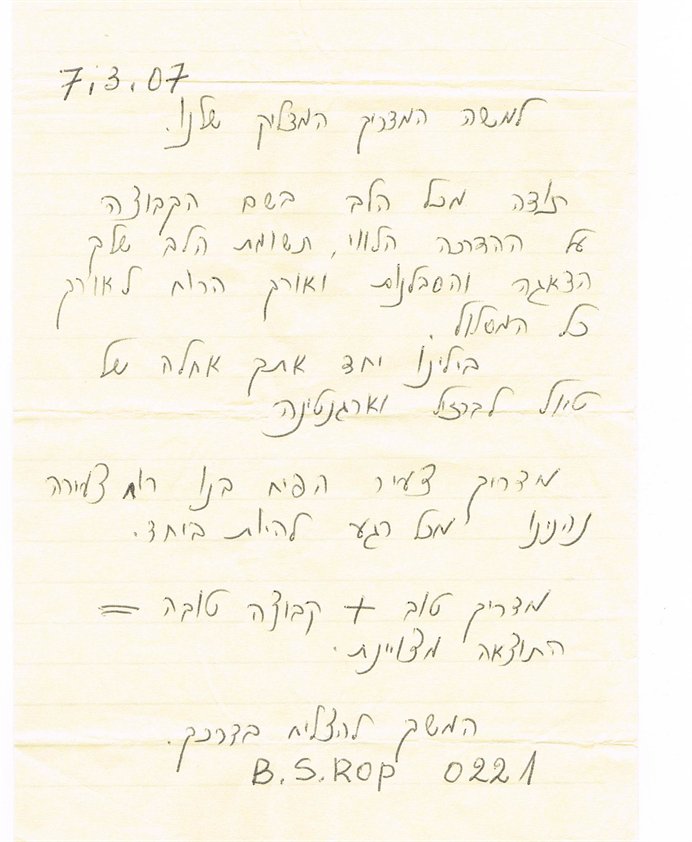 7.3.07
למשה המדריך המצליק שלנו.
תודה מכל הלב בשם הקבוצה
על ההדרכה הלווי, תשומת הלב שלך
הדאגה והסבלנות ואורך הרוח לאורך
כל המסלול.
בילינו יחד אתך אחלה של
טיול לברזיל וארגנטינה
מדריך צעיר הפיח בנו רוח צעירה
נהנינו מכל רגע להיות ביחד.
מדריך טוב + קבוצה טובה =
התוצאה מצויינת.
המשך להצליח בדרכך.
B.S.ROP 0221